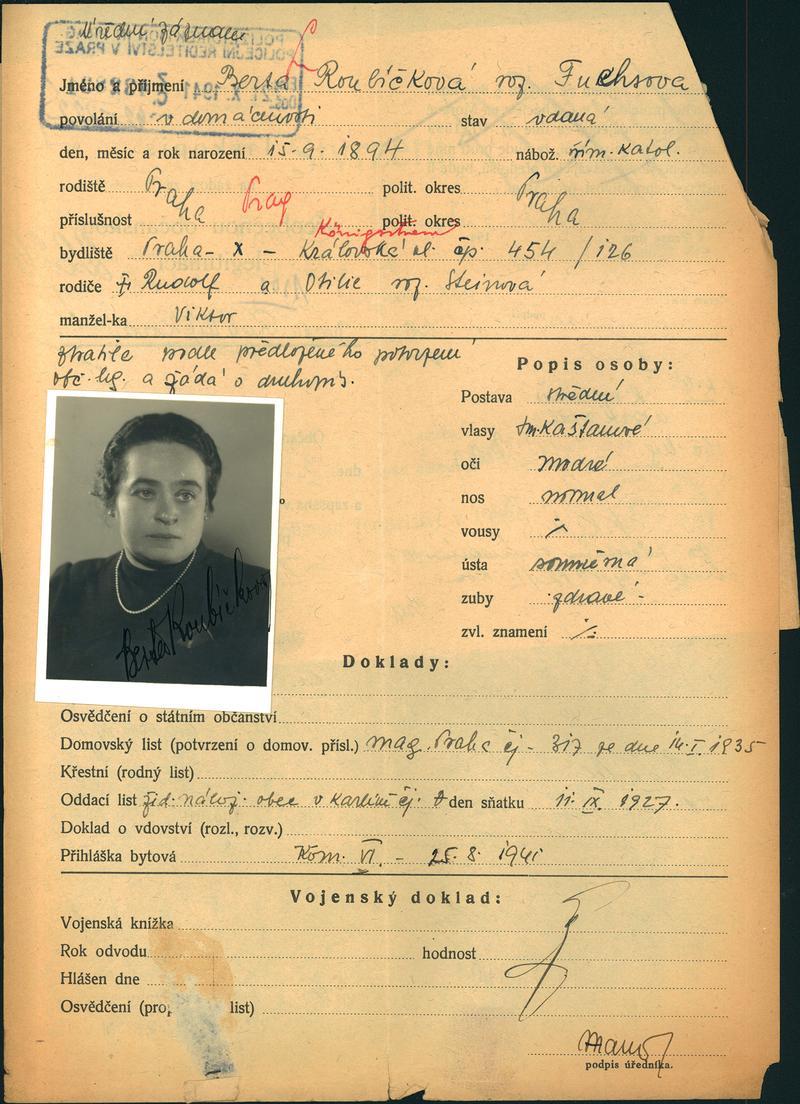 Úřední záznam
POLICEJNÍ ŘEDITELSTVÍ V PRAZE
Jméno a příjmení Berta Roubíčková roz. Fuchsova
povolání v domácnosti stav vdaná
den, měsíc a rok narození 15.9. 1894 nábož. řím. katol.
rodiště Praha Prag polit. okres Praha
příslušnost polit. okres
Königstrasse
bydliště Praha - X - Královská ul. čp. 454 / 126
rodiče Rudolf a Otilie roz. Steinová
manžel-ka Viktor
ztratila podle předloženého potvrzení
obč. leg. a žádá o druhopis.
Popis osoby:
Postava střední
vlasy tm. Kaštanové
oči modré
nos normal
vousy
ústa souměrná
zuby zdravé
zvl. znamení
Berta Roubíčková
Doklady:
Osvědčení o státním občanství
Domovský list (potvrzení o domov. přísl.) mag. Praha čj - 317 ze dne 14.I. 1935
Křestní (rodný list)
Oddací list žid. nábož. obec v Karlíně čj. den sňatku 11. IX. 1927.
Doklad o vdovství (rozl., rozv.)
Přihláška bytová Kom. VI. - 25. 8. 1941
Vojenský doklad:
Vojenská knížka
Rok odvodu hodnost
Hlášen dne
Osvědčení (pro list)
podpis úředníka.